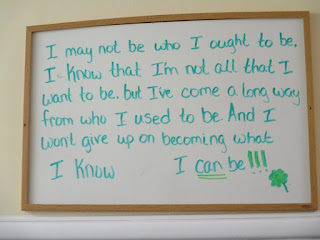 I may not be who I ought to be.
I know that I'm not all that I
want to be. but I've come a long way
from who I used to be. And I
won't give up on becoming what
I know I can be!!!